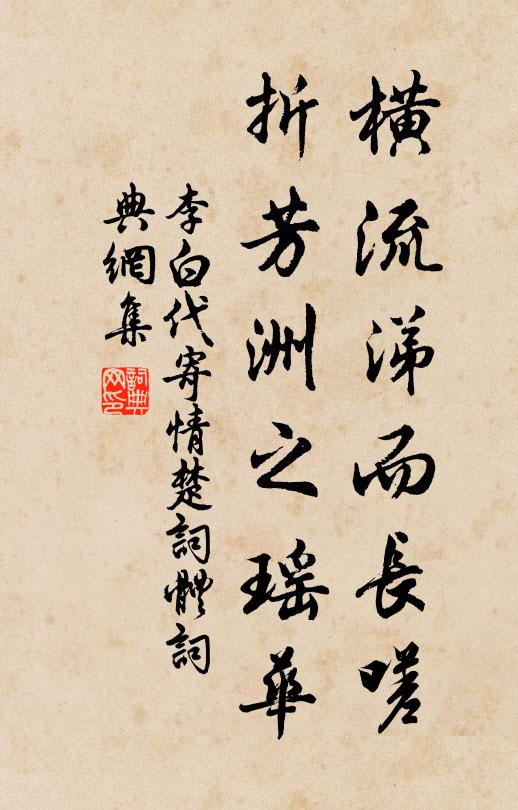 橫流涕而長嗟
折芳洲之瑤華
李白代寄情楚詞體詞
典網集
詞典網印